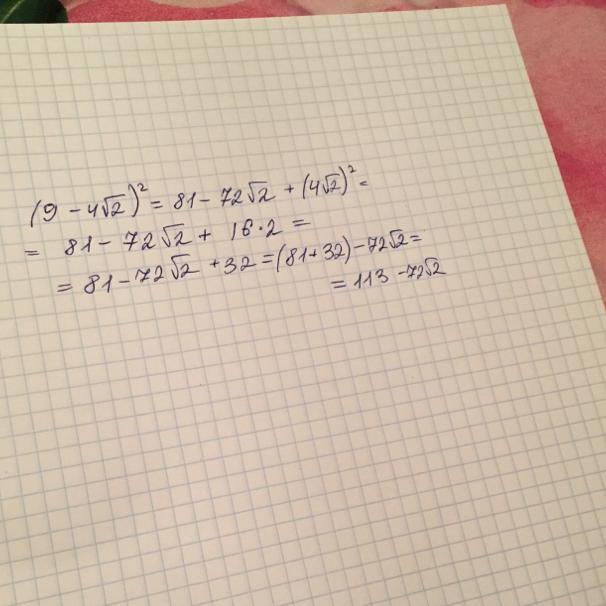 (9 - 4√2)² = 81 - 72√2 + (4√2)² =
= 81 - 72√2 + 16·2 =
= 81 - 72√2 + 32 = (81 + 32) - 72√2 =
= 113 - 72√2